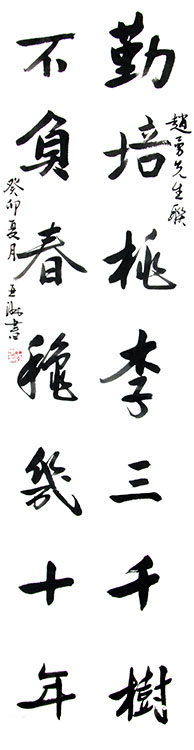 勤培桃李三千樹
趙勇先生聯
不負春穐幾十年
癸卯夏月
书